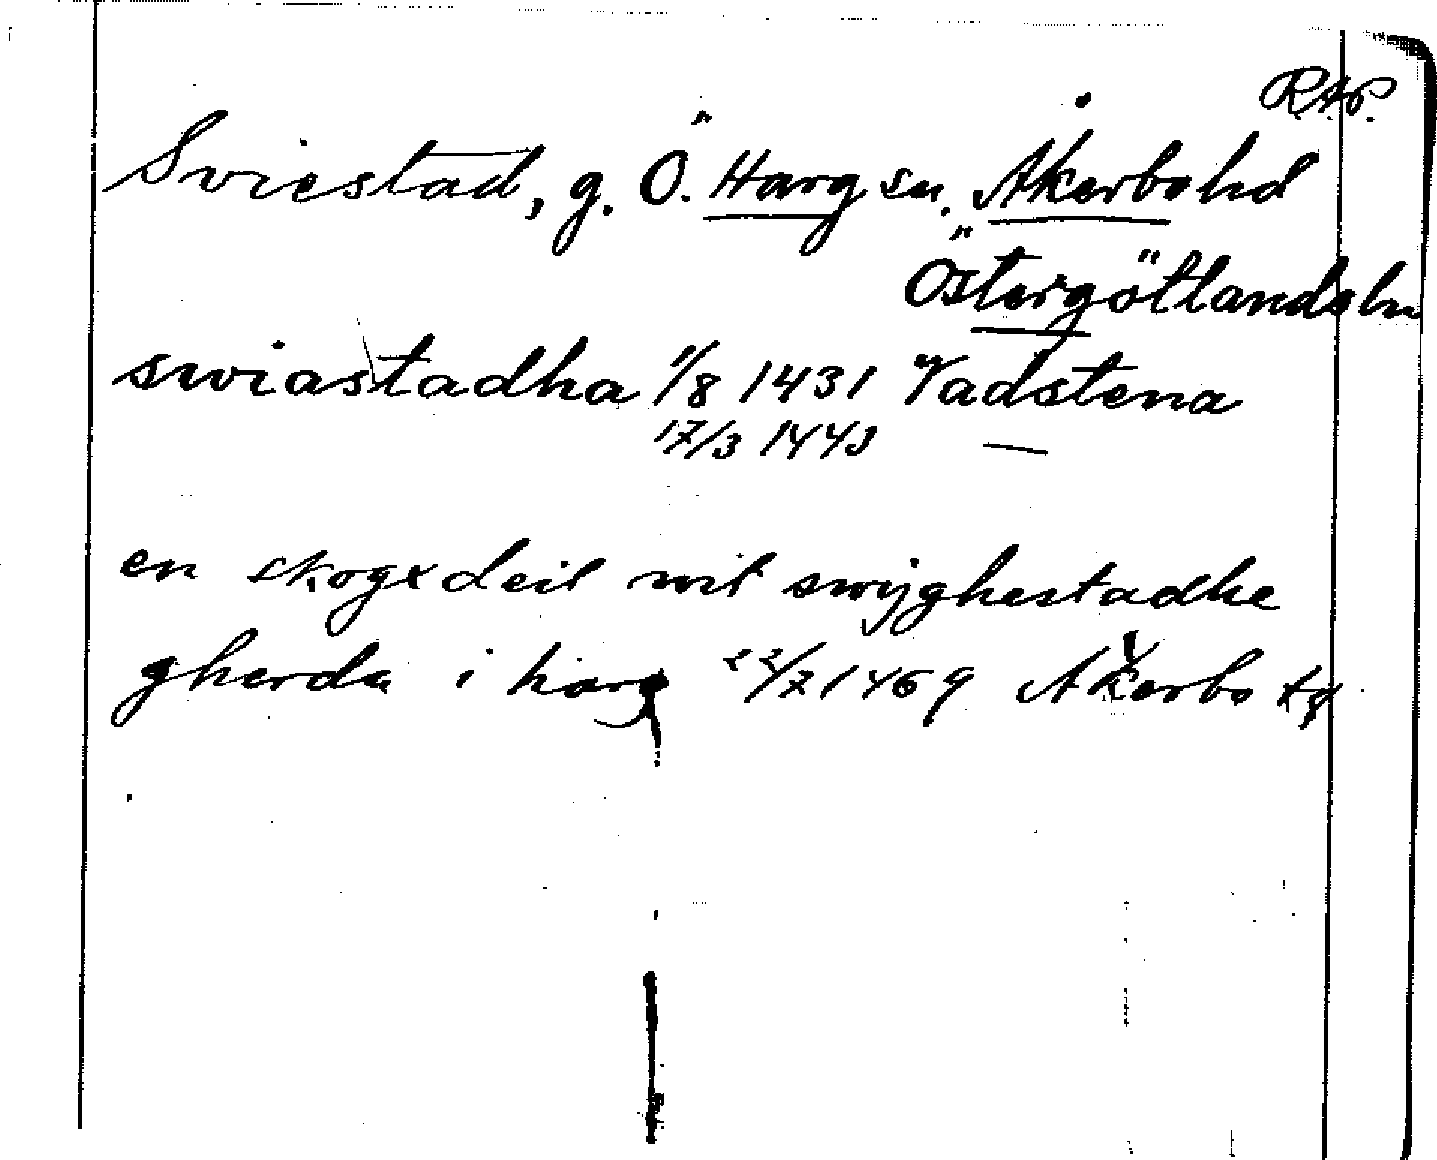 RAP.
Sviestad, g. Ö. Harg sn. Åkerbo hd
Östergötlands ln
swiastadha 1/8 1431 Vadstena
17/3 1443 —
en skogx deil wit swijghestadhe
gherda i harg 22/7 1469 Åkerbo tg